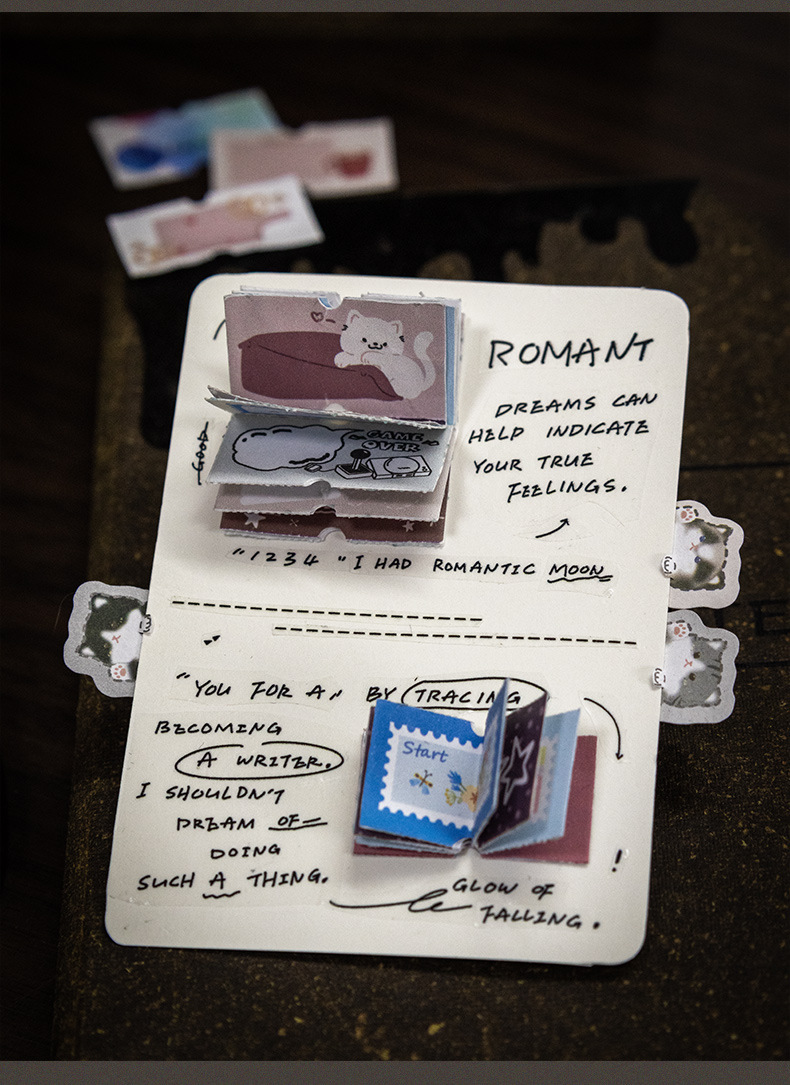 ROMANT
DREAMS CAN
HELP INDICATE
YOUR TRUE
FEELINGS.
GAME
OVER
GOOD
"1234 "I HAD ROMANTIC MOON
"YOU FOR A" BY TRACING
BECOMING
A WRITER.
I SHOULDN'T
DREAM OF
DOING
SUCH A THING.
Start
!
GLOW OF
FALLING.